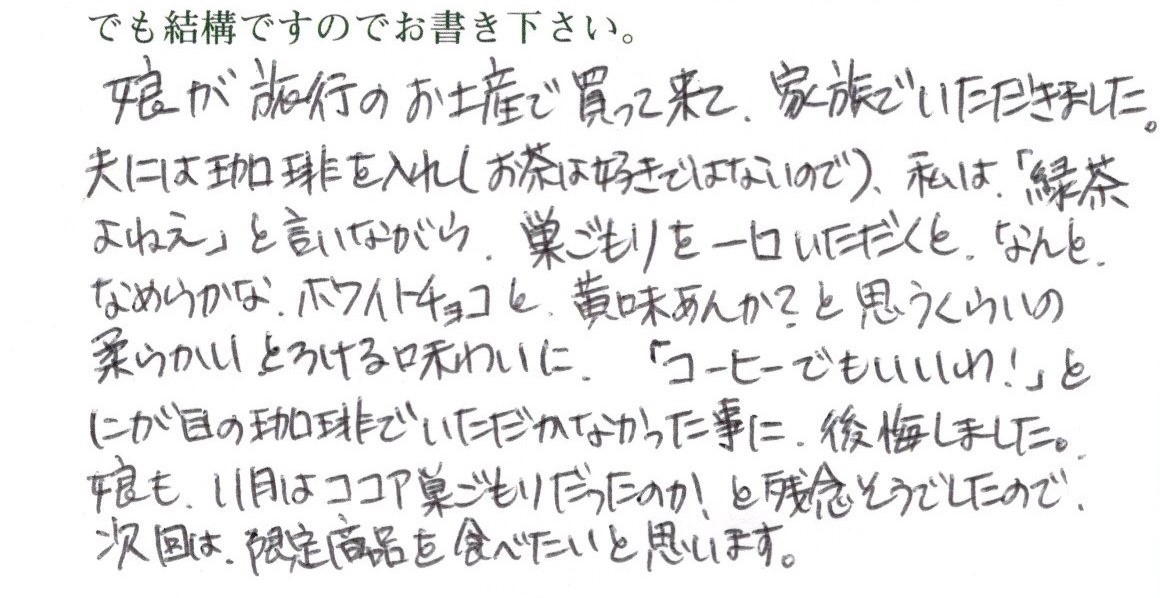 でも結構ですのでお書き下さい。
娘が旅行のお土産で買って来て、家族でいただきました。
夫には珈琲を入れ(お茶は好きではないので)、私は、「緑茶
よねえ」と言いながら、巣ごもりを一口いただくと、なんと、
なめらかな、ホワイトチョコと、黄味あんか?と思うくらいの
柔らかいとろける味わいに、「コーヒーでもいいわ!」と
にが目の珈琲でいただかなかった事に、後悔しました。
娘も、11月はココア巣ごもりだったのか!と残念そうでしたので、
次回は、限定商品を食べたいと思います。